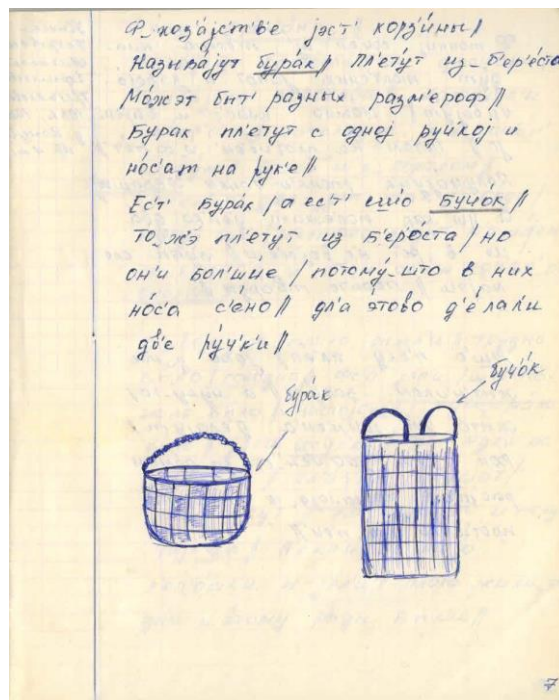 Ф_хоза́jс'т'в'е jэст' корзи́ны//
Называ́jут бура́к// пл'ету́т из_б'ер'о́ста//
Мо́жэт быт' разных разм'ероф//
Бурак пл'етут с одноj ру́ч'коj и
но́с'ат на рук'е//
Ест' бура́к/ а ест' ешшо бучо́к//
То_жэ пл'ету́т из б'еро́ста/ но
он'и бол'шы́е/ потому́_што в них
но́са с'ено// дл'а э́тово д'е́лали
дв'е ру́чк'и//
бура́к
бучо́к
7